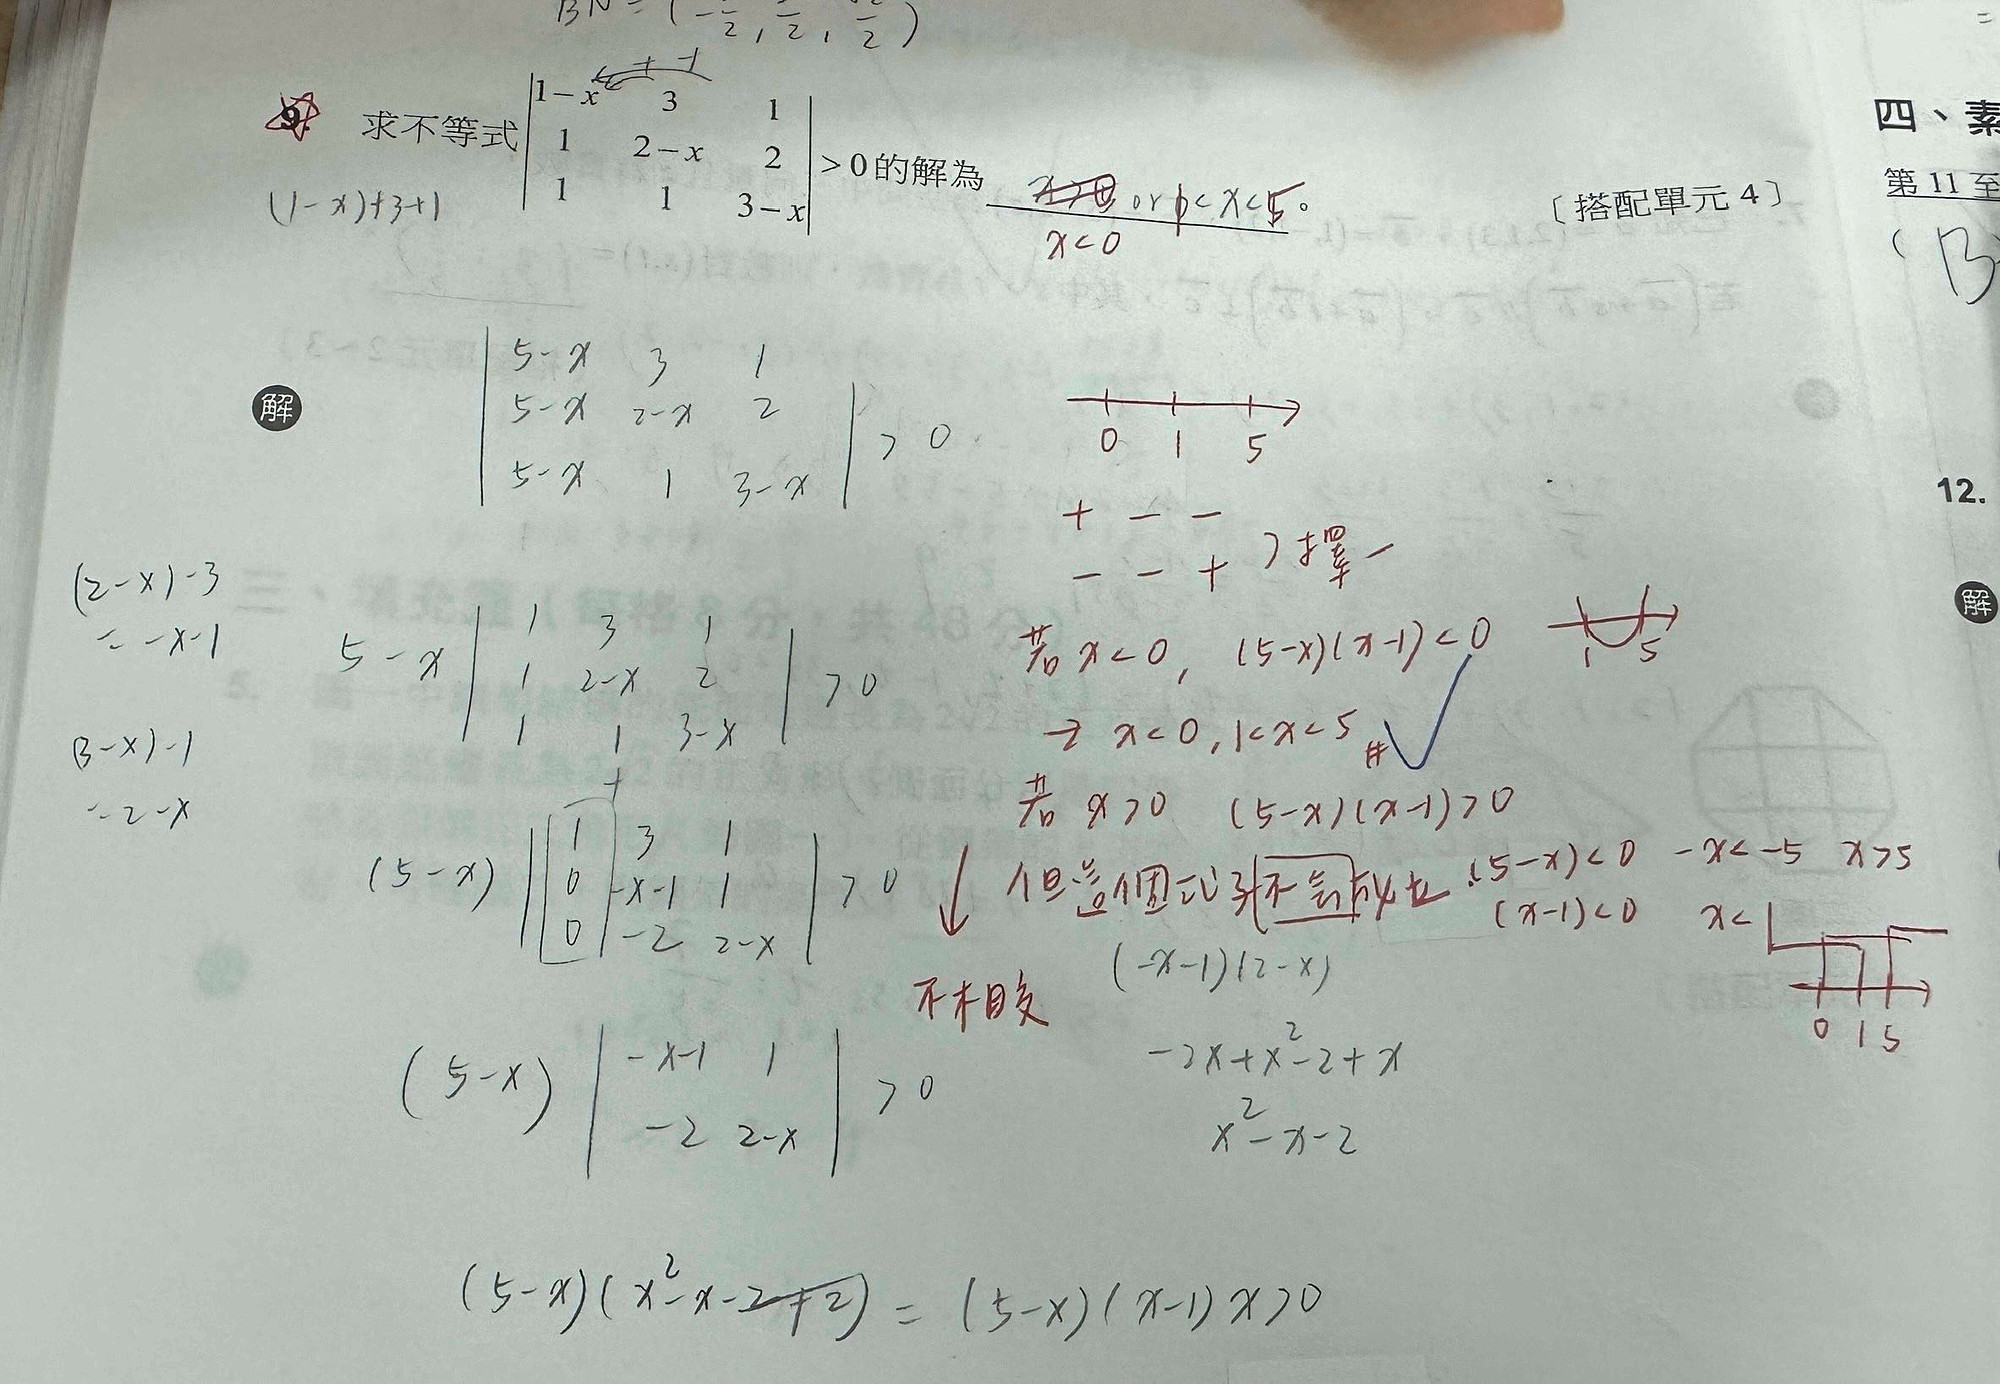 BN = (-/2, /2, /2)
+ -1
9. 求不等式 | 1-x 3 1 |
| 1 2-x 2 | >0的解為 x<0 or 1<x<5。 〔搭配單元4〕
| 1 1 3-x |
(1-x)+3+1
四、素
第11至
(B
解
| 5-x 3 1 |
| 5-x 2-x 2 | >0
| 5-x 1 3-x |
0 1 5
+ - -
- - + >擇一
12.
解
(2-x)-3
= -x-1
(3-x)-1
= 2-x
5-x | 1 3 1 |
| 1 2-x 2 | >0
| 1 1 3-x |
+
(5-x) | 1 3 1 |
| 0 -x-1 1 | >0
| 0 -2 2-x |
(5-x) | -x-1 1 |
| -2 2-x | >0
若 x<0, (5-x)(x-1)<0
1 5
→ x<0, 1<x<5 #
若 x>0 (5-x)(x-1)>0
但這個式子不會成立 (5-x)<0 -x<-5 x>5
(x-1)<0 x<1
0 1 5
不相交
(-x-1)(2-x)
-2x+x²-2+x
x²-x-2
(5-x)(x²-x-2+2) = (5-x)(x-1)x>0